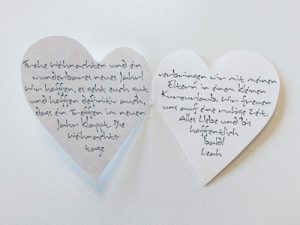 Frohe Weihnachten und ein
wunderbares neues Jahr!
Wir hoffen, es geht euch gut
und hoffen definitiv auch,
dass ein Treffen im neuen
Jahr klappt. Die
Weihnachts
tage
verbringen wir mit meinen
Eltern in einem kleinen
Kurzurlaub. Wir freuen
uns auf eine ruhige Zeit.
Alles Liebe und bis
hoffentlich
bald!
Leah